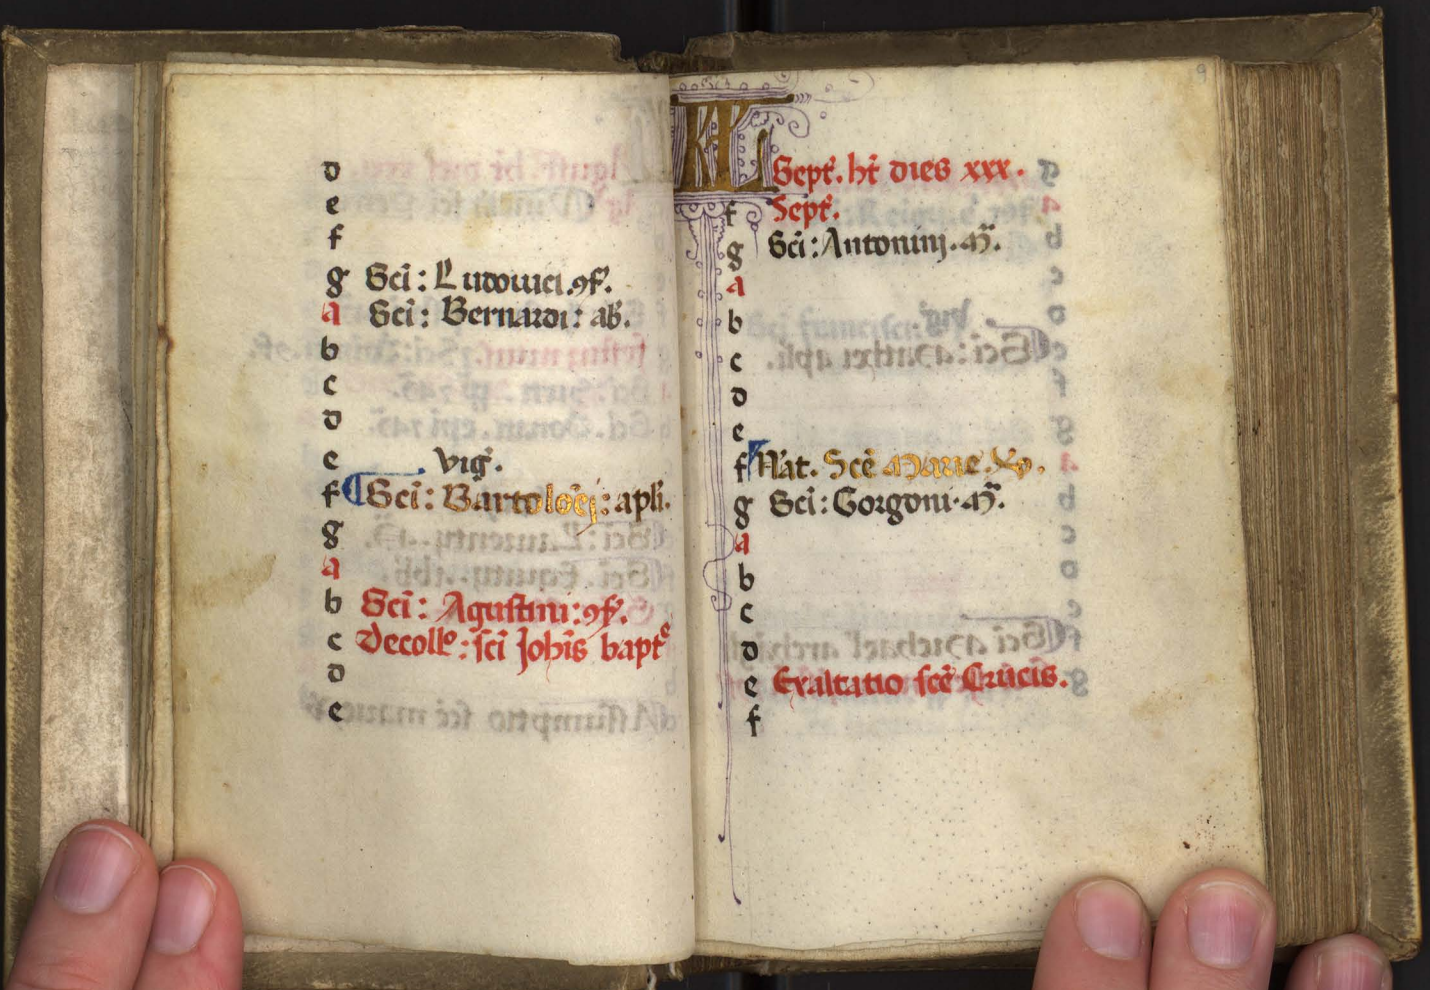 d
e
f
g Sci: Ludouici. ꝯf.
a Sci: Bernardi: ab.
b
c
d
e vig̃.
f Sci: Bartolom̃ei: apli.
g
a
b Sci: Agustini: ꝯf.
c Decollo: sci Johis bapte
d
e
9
KL Sept. ht dies xxx.
f Sept.
g Sci: Antonini. M̃.
a
b
c
d
e
f Nat. Sce Marie. Xo.
g Sci: Gorgoni. M̃.
a
b
c
d
e Exaltatio sce Crucis.
f